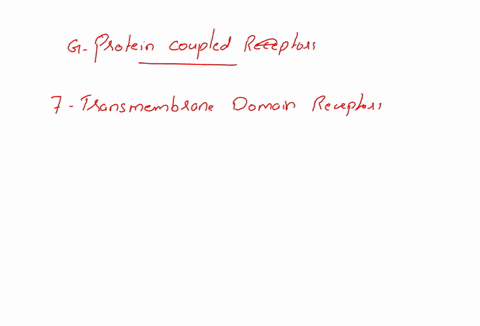 G-Protein coupled Receptors
7-Transmembrane Domain Receptors